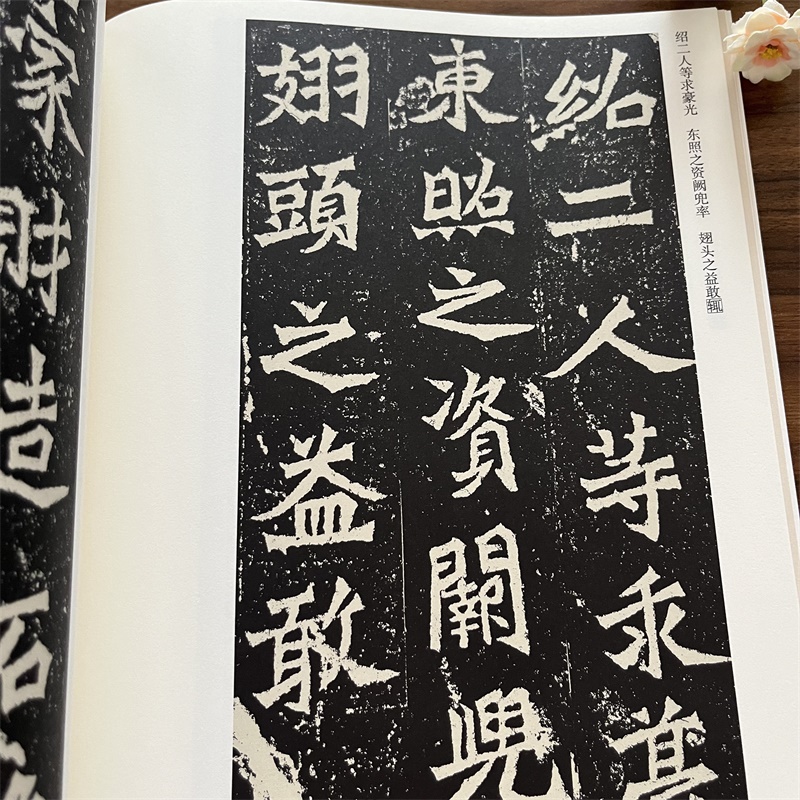 绍二人等求豪光 东照之资阙兜率 翅头之益敢辄
紹二人等求
東照之資闕兜
翅頭之益敢
家財造石